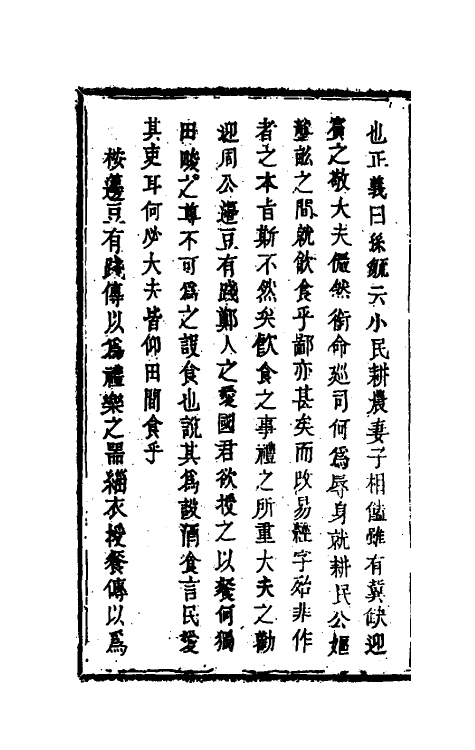 也正義曰孫毓云小民耕農妻子相饁雖有冀缺迎
賓之敬大夫儼然銜命巡司何爲辱身就耕民公嫗
壟畝之間就飲食乎鄙亦甚矣而改易經字殆非作
者之本旨斯不然矣飲食之事禮之所重大夫之勸
迎周公籩豆有踐鄭人之愛國君欲授之以餐何獨
田畯之尊不可爲之設食也說其爲設酒食言民愛
其吏耳何必大夫皆仰田間食乎
桉籩豆有踐傳以爲禮樂之器緇衣授餐傳以爲